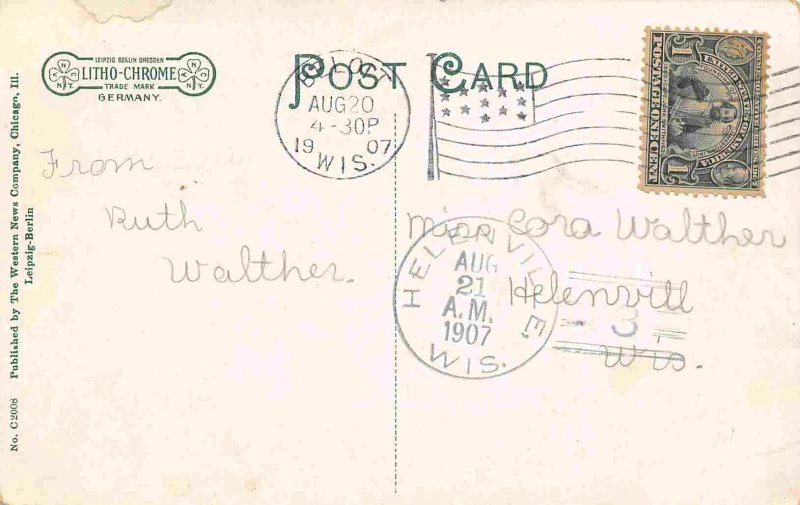 LEIPZIG BERLIN DRESDEN
LITHO-CHROME
TRADE MARK
GERMANY.
N N
Y. Y.
N N
Y. Y.
POST CARD
BELOIT
AUG 20
4-30P
19 07
WIS.
1 POSTAGE ONE CENT 1
From
Ruth
Walther.
Miss Cora Walther
Helenvill
Wis.
HELENVILLE
AUG
21
A.M.
1907
WIS.
- 3
No. C 2008 Published by The Western News Company, Chicago, Ill.
Leipzig-Berlin